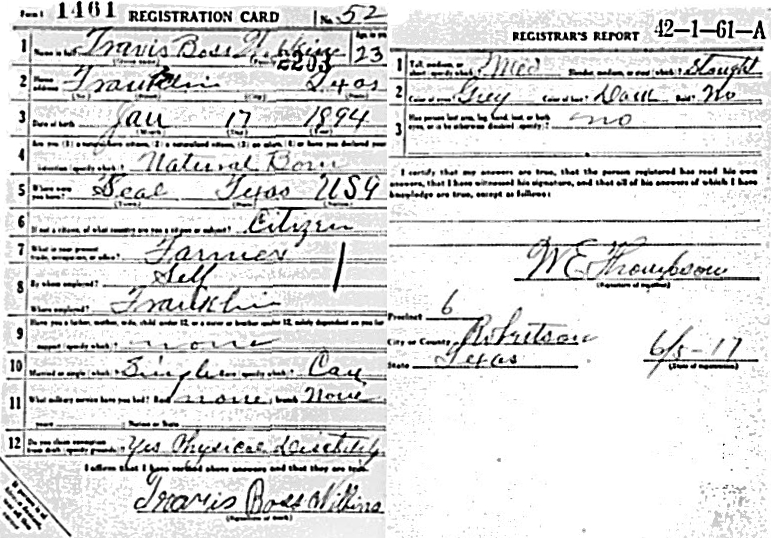 Form 1 1461 REGISTRATION CARD No. 52
1 Name in full Travis Boss Wilkins Age, in yrs 23
2203
2 Home address Franklin Texas
3 Date of birth Jan 17 1894
4 Are you (1) a natural-born citizen, (2) a naturalized citizen, (3) an alien, (4) or have you declared your
intention (specify which)? Natural Born
5 Where were you born? Seal Texas USA
6 If not a citizen, of what country are you a citizen or subject? Citizen
7 What is your present trade, occupation, or office? Farmer
8 By whom employed? Self
Where employed? Franklin
9 Have you a father, mother, wife, child under 12, or a sister or brother under 12, solely dependent on you for
support (specify which)? none
10 Married or single (which)? Single Race (specify which)? Cau
11 What military service have you had? Rank none branch None
years Nation or State
12 Do you claim exemption from draft (specify grounds)? Yes Physical
I affirm that I have verified above answers and that they are true.
Travis Boss Wilkins
(Signature or mark)
If person is of
REGISTRAR'S REPORT 42-1-61-A
1 Tall, medium, or short (specify which)? Med Slender, medium, or stout (which)? Stought
2 Color of eyes? Grey Color of hair? Dark Bald? No
3 Has person lost arm, leg, hand, foot, or both eyes, or is he otherwise disabled (specify)? no
I certify that my answers are true, that the person registered has read his own
answers, that I have witnessed his signature, and that all of his answers of which I have
knowledge are true, except as follows:
W E Thompson
(Signature of registrar)
Precinct 6
City or County Robertson
State Texas 6/5-17
(Date of registration)